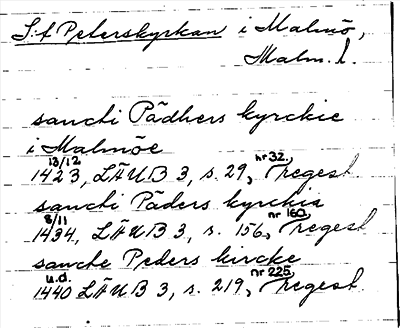 S:t Peterskyrkan i Malmö,
Malm. l.
sancti Pädhers kyrckie
i Malmöe
13/12
1423, LÄUB 3, s. 29, nr 32, regest
sancti Päders kyrkia
8/11
1434, LÄUB 3, s. 156, nr 160, regest
sancte Peders kircke
u.d.
1440 LÄUB 3, s. 219, nr 225, regest.